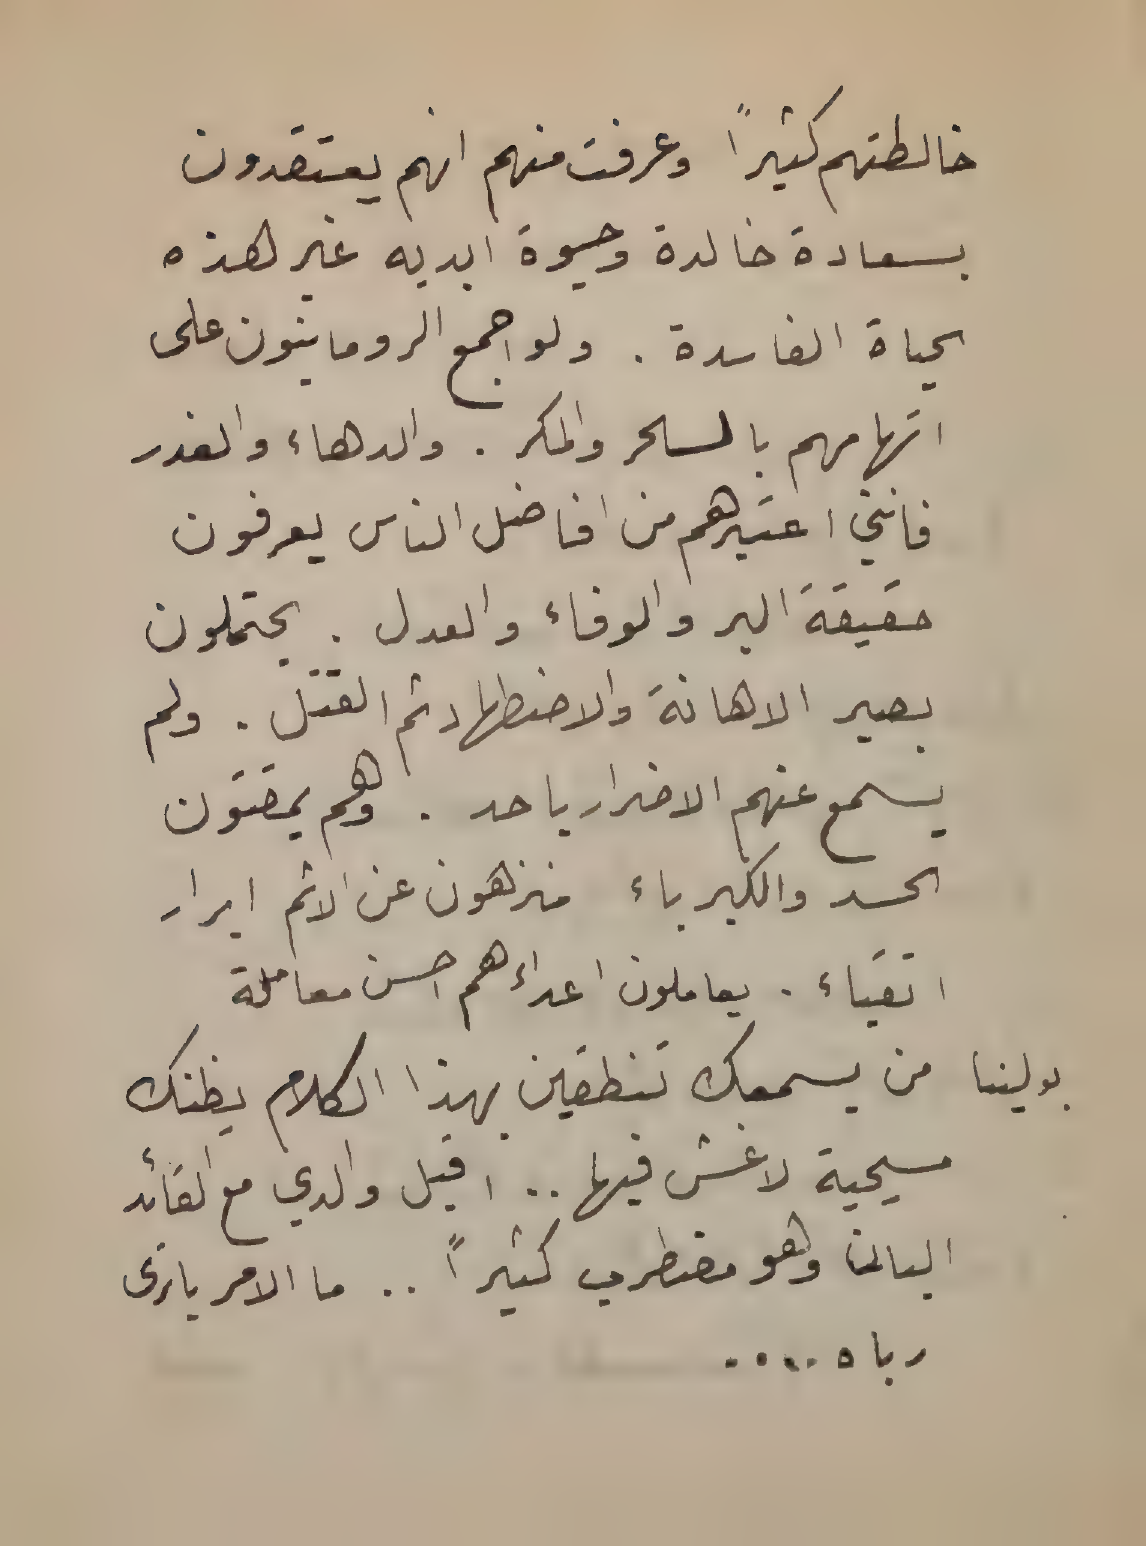 خالطتهم كثيراً وعرفت منهم انهم يعتقدون
بسعادة خالدة وحيوة ابديه غير لهذه
الحياة الفاسدة . ولو اجمع الرومانيون على
اتهامهم بالسحر والمكر . والدهاء والغدر
فانني اعتبرهم من افاضل الناس يعرفون
حقيقة البر والوفاء والعدل . يحتملون
بصبر الاهانة والاضطهاد ثم القتل . ولم
يسمع عنهم الاضرار باحد . وهم يمقتون
الحسد والكبرياء منزهون عن الاثم ابرار
اتقياء . يعاملون اعداءهم احسن معاملة
بولينا من يسمعك تنطقين بهذا الكلام يظنك
مسيحية لاغش فيها .. اقبل والدي مع القائد
الينا وهو مضطرب كثيراً .. ما الامر يا ترى
رباه .....